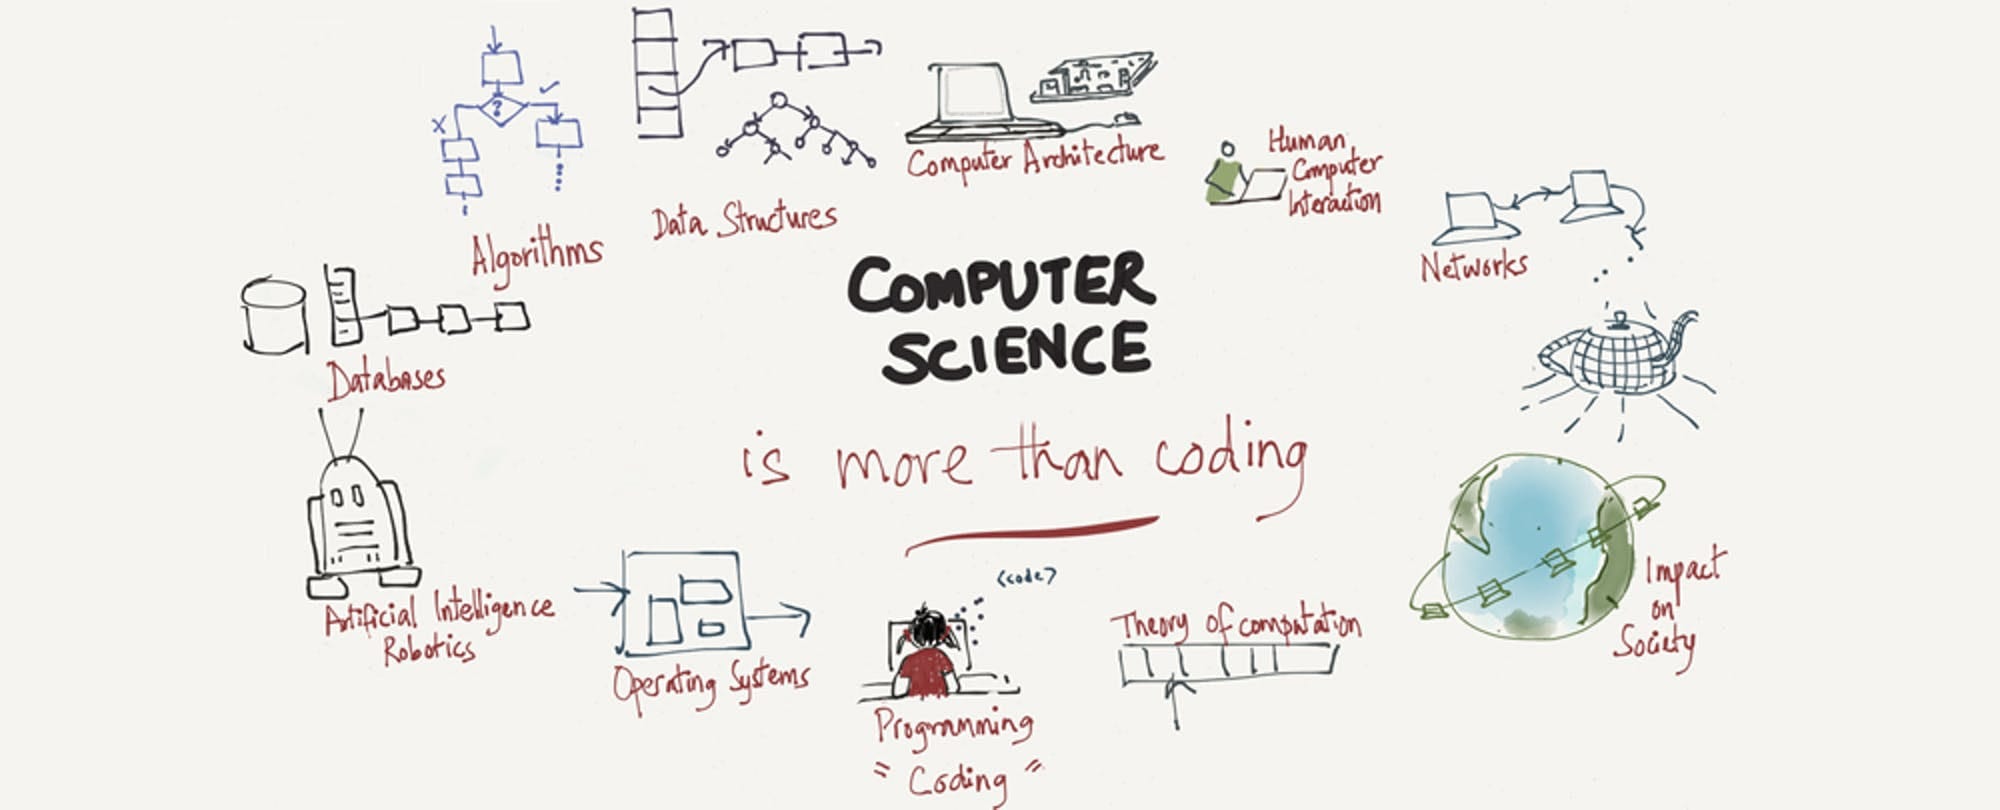 Computer Architecture
Human
Computer
Interaction
Data Structures
Algorithms
Networks
COMPUTER
SCIENCE
is more than coding
Databases
?
x
Artificial Intelligence
Robotics
Operating Systems
<code>
Programming
" Coding "
Theory of computation
Impact
on
Society